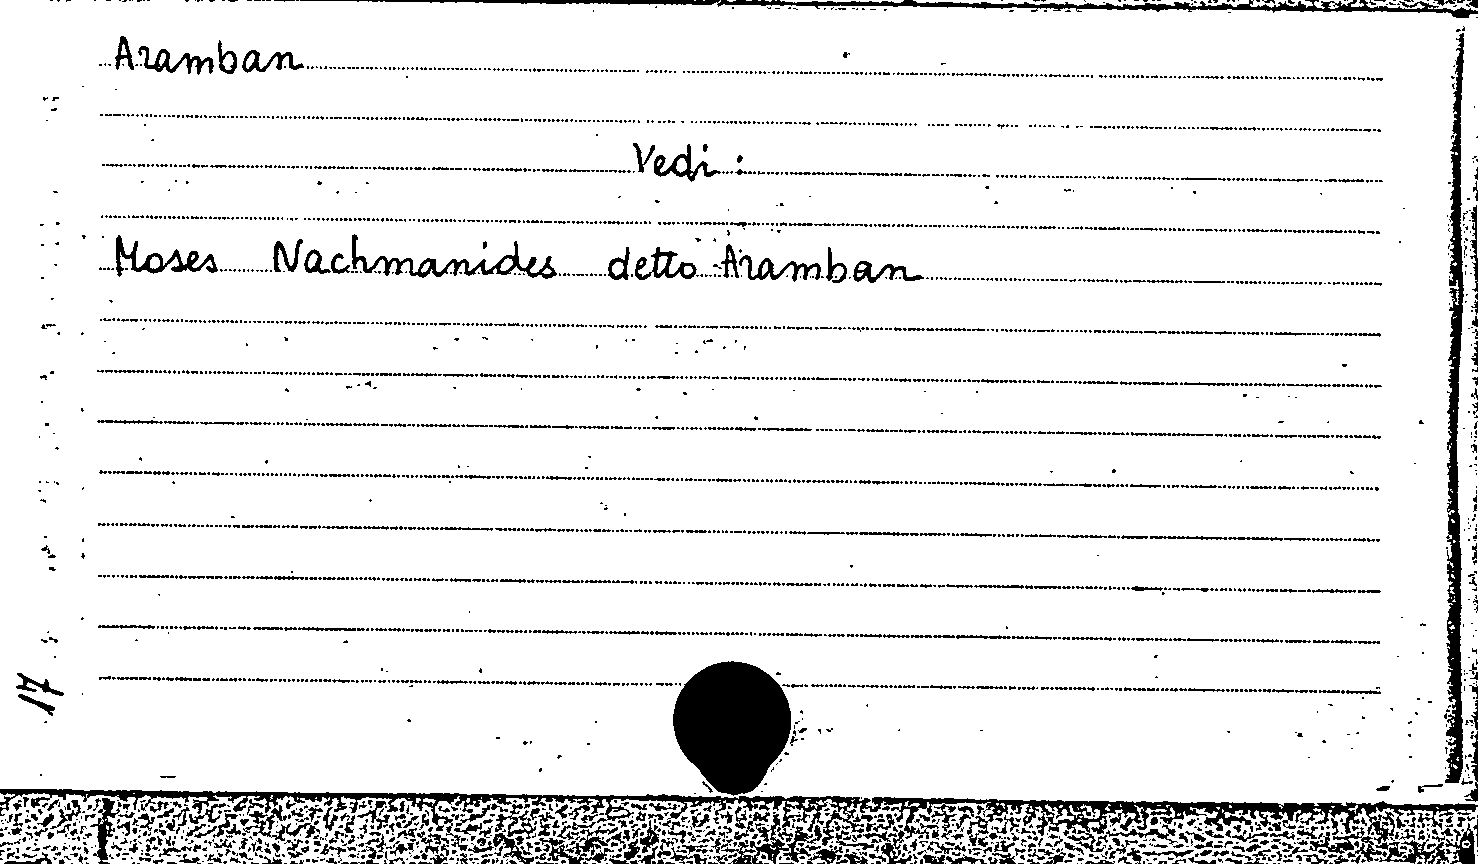 Aramban
Vedi :
Moses Nachmanides detto Aramban